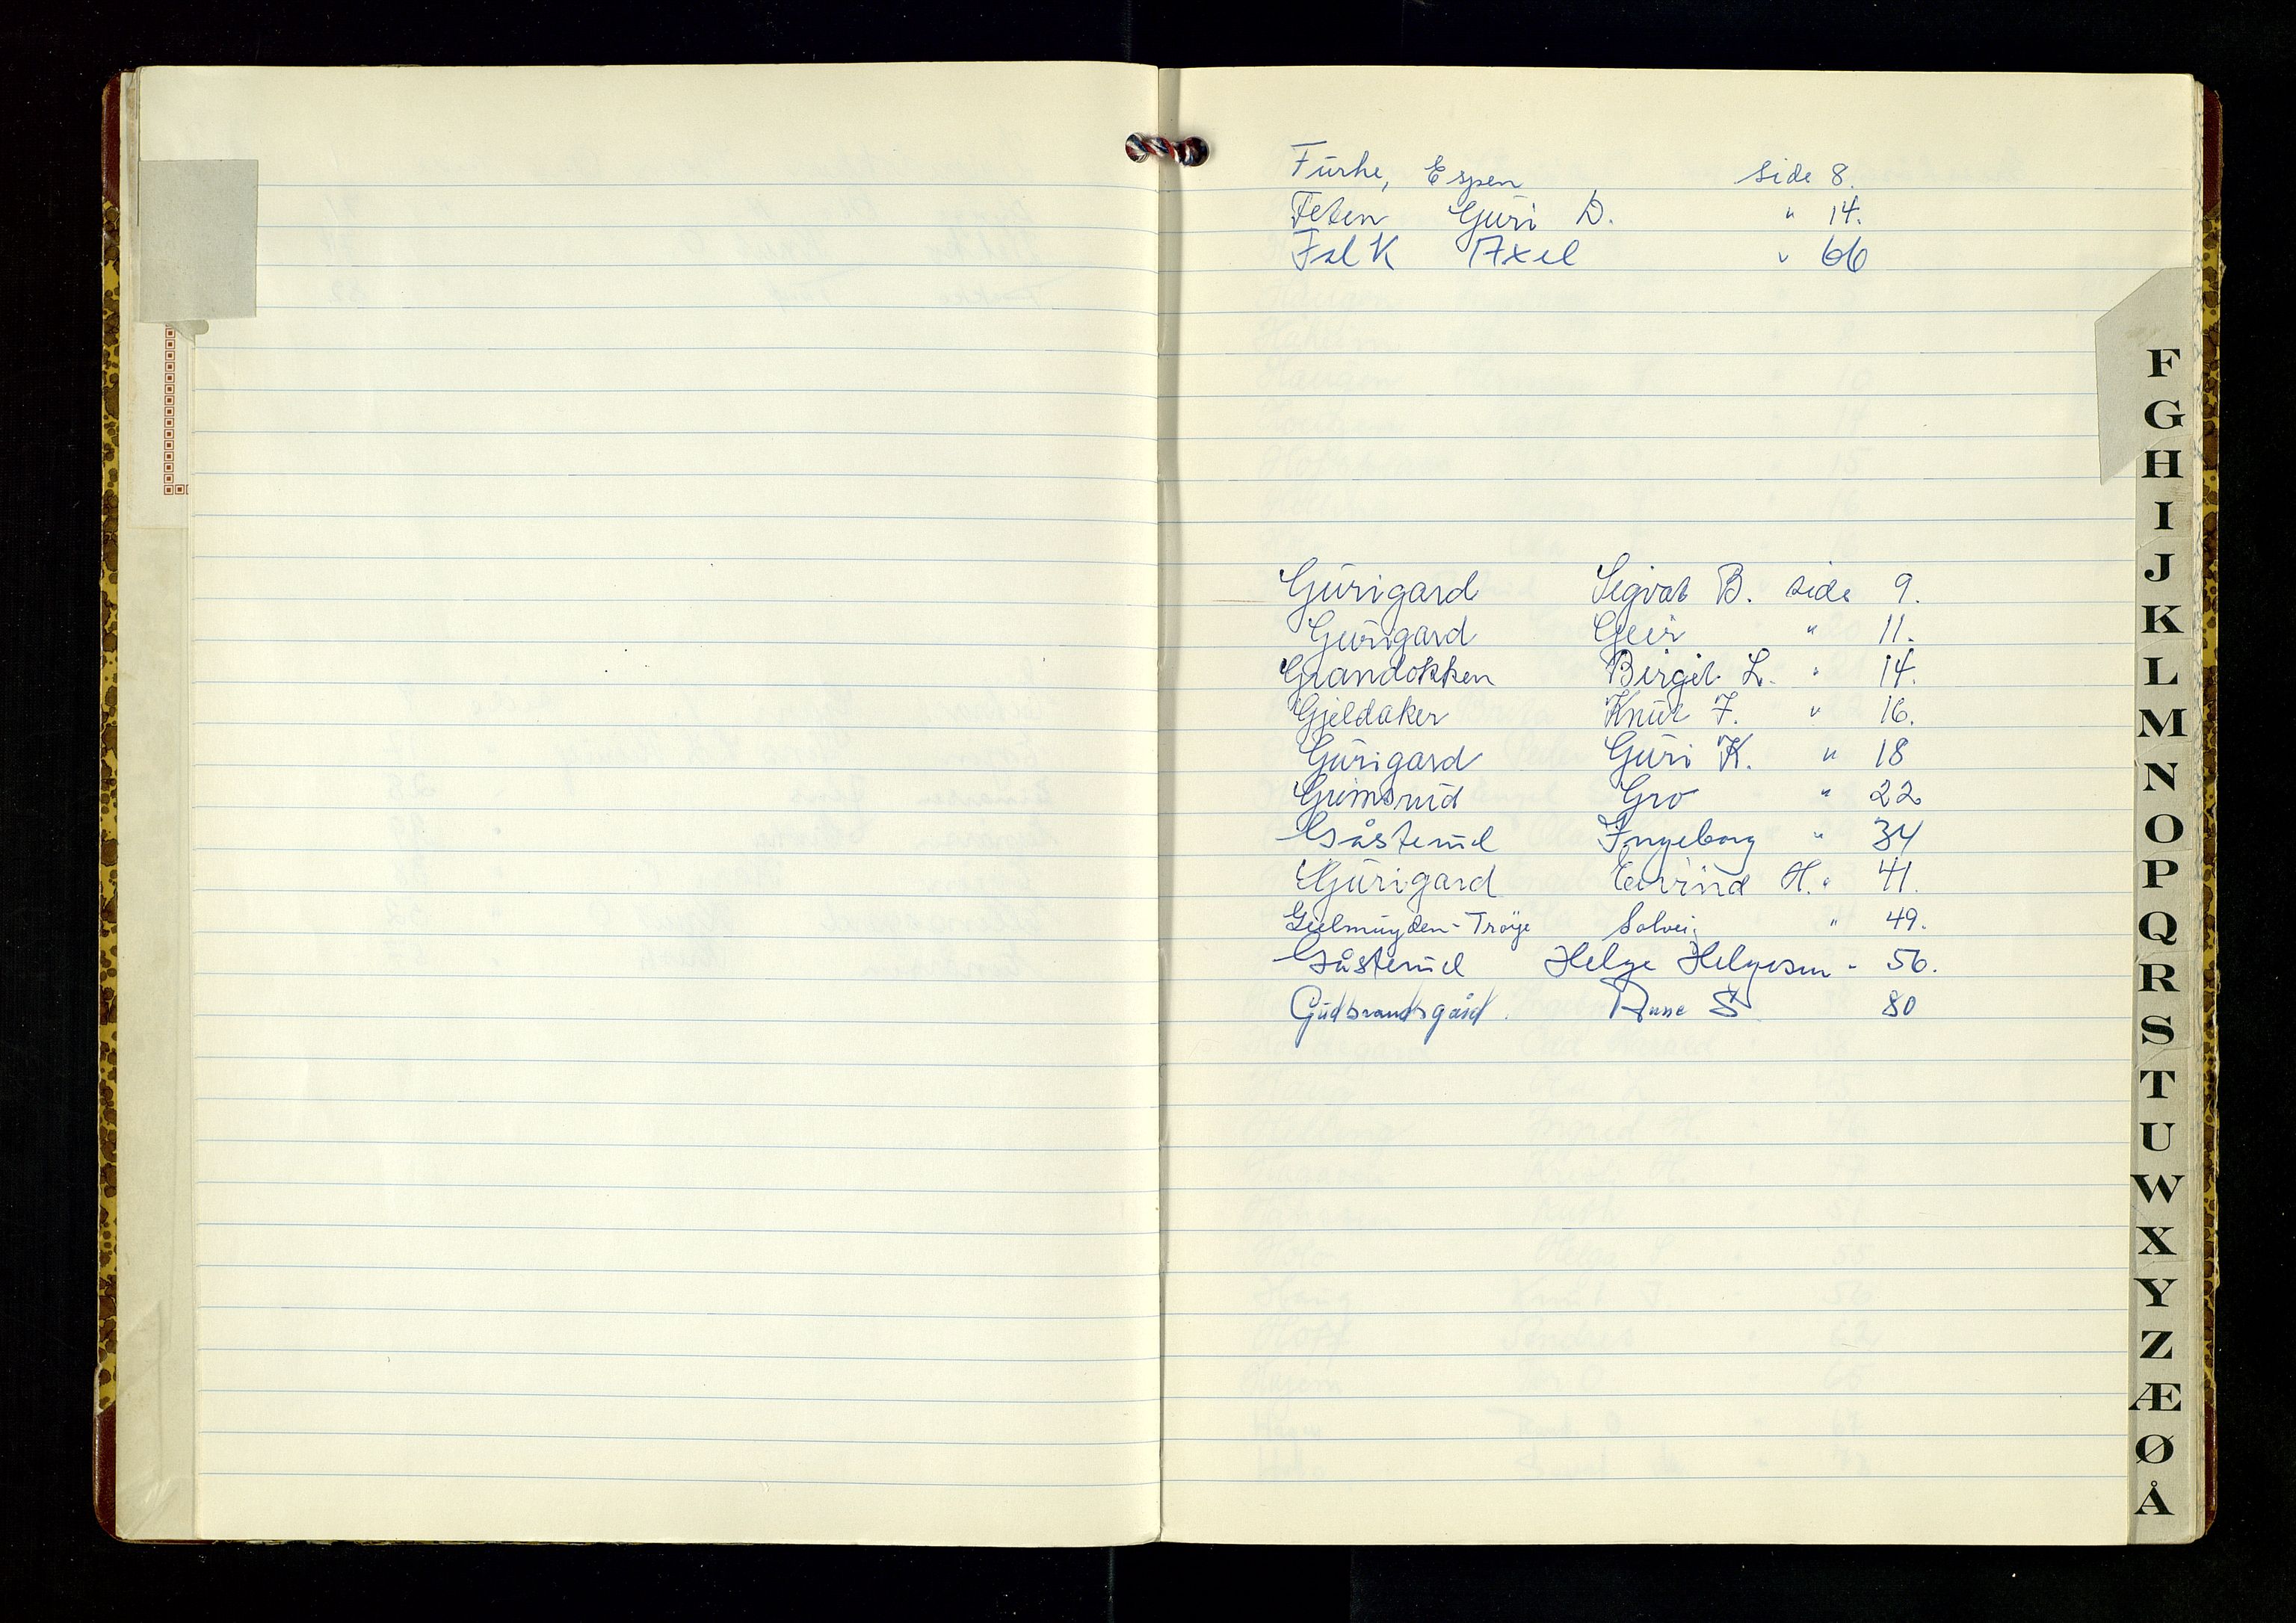 Furhe, Espen side 8.
Feten Guri D. " 14.
Falk Axel " 66
Gurigard Sigvat B. side 9.
Gurigard Geir " 11.
Grandokken Birgit L. " 14.
Gjeldaker Knut F. " 16.
Gurigard Guri K. " 18
Grimsrud Gro " 22
Gåsterud Ingeborg " 34
Gurigard Eivind H. " 41.
Gielmuyden-Trøye Solvei " 49.
Gåsterud Helge Helgesen " 56.
Gudbrandsgård. Rune S 80
F
G
H
I
J
K
L
M
N
O
P
Q
R
S
T
U
W
X
Y
Z
Æ
Ø
Å